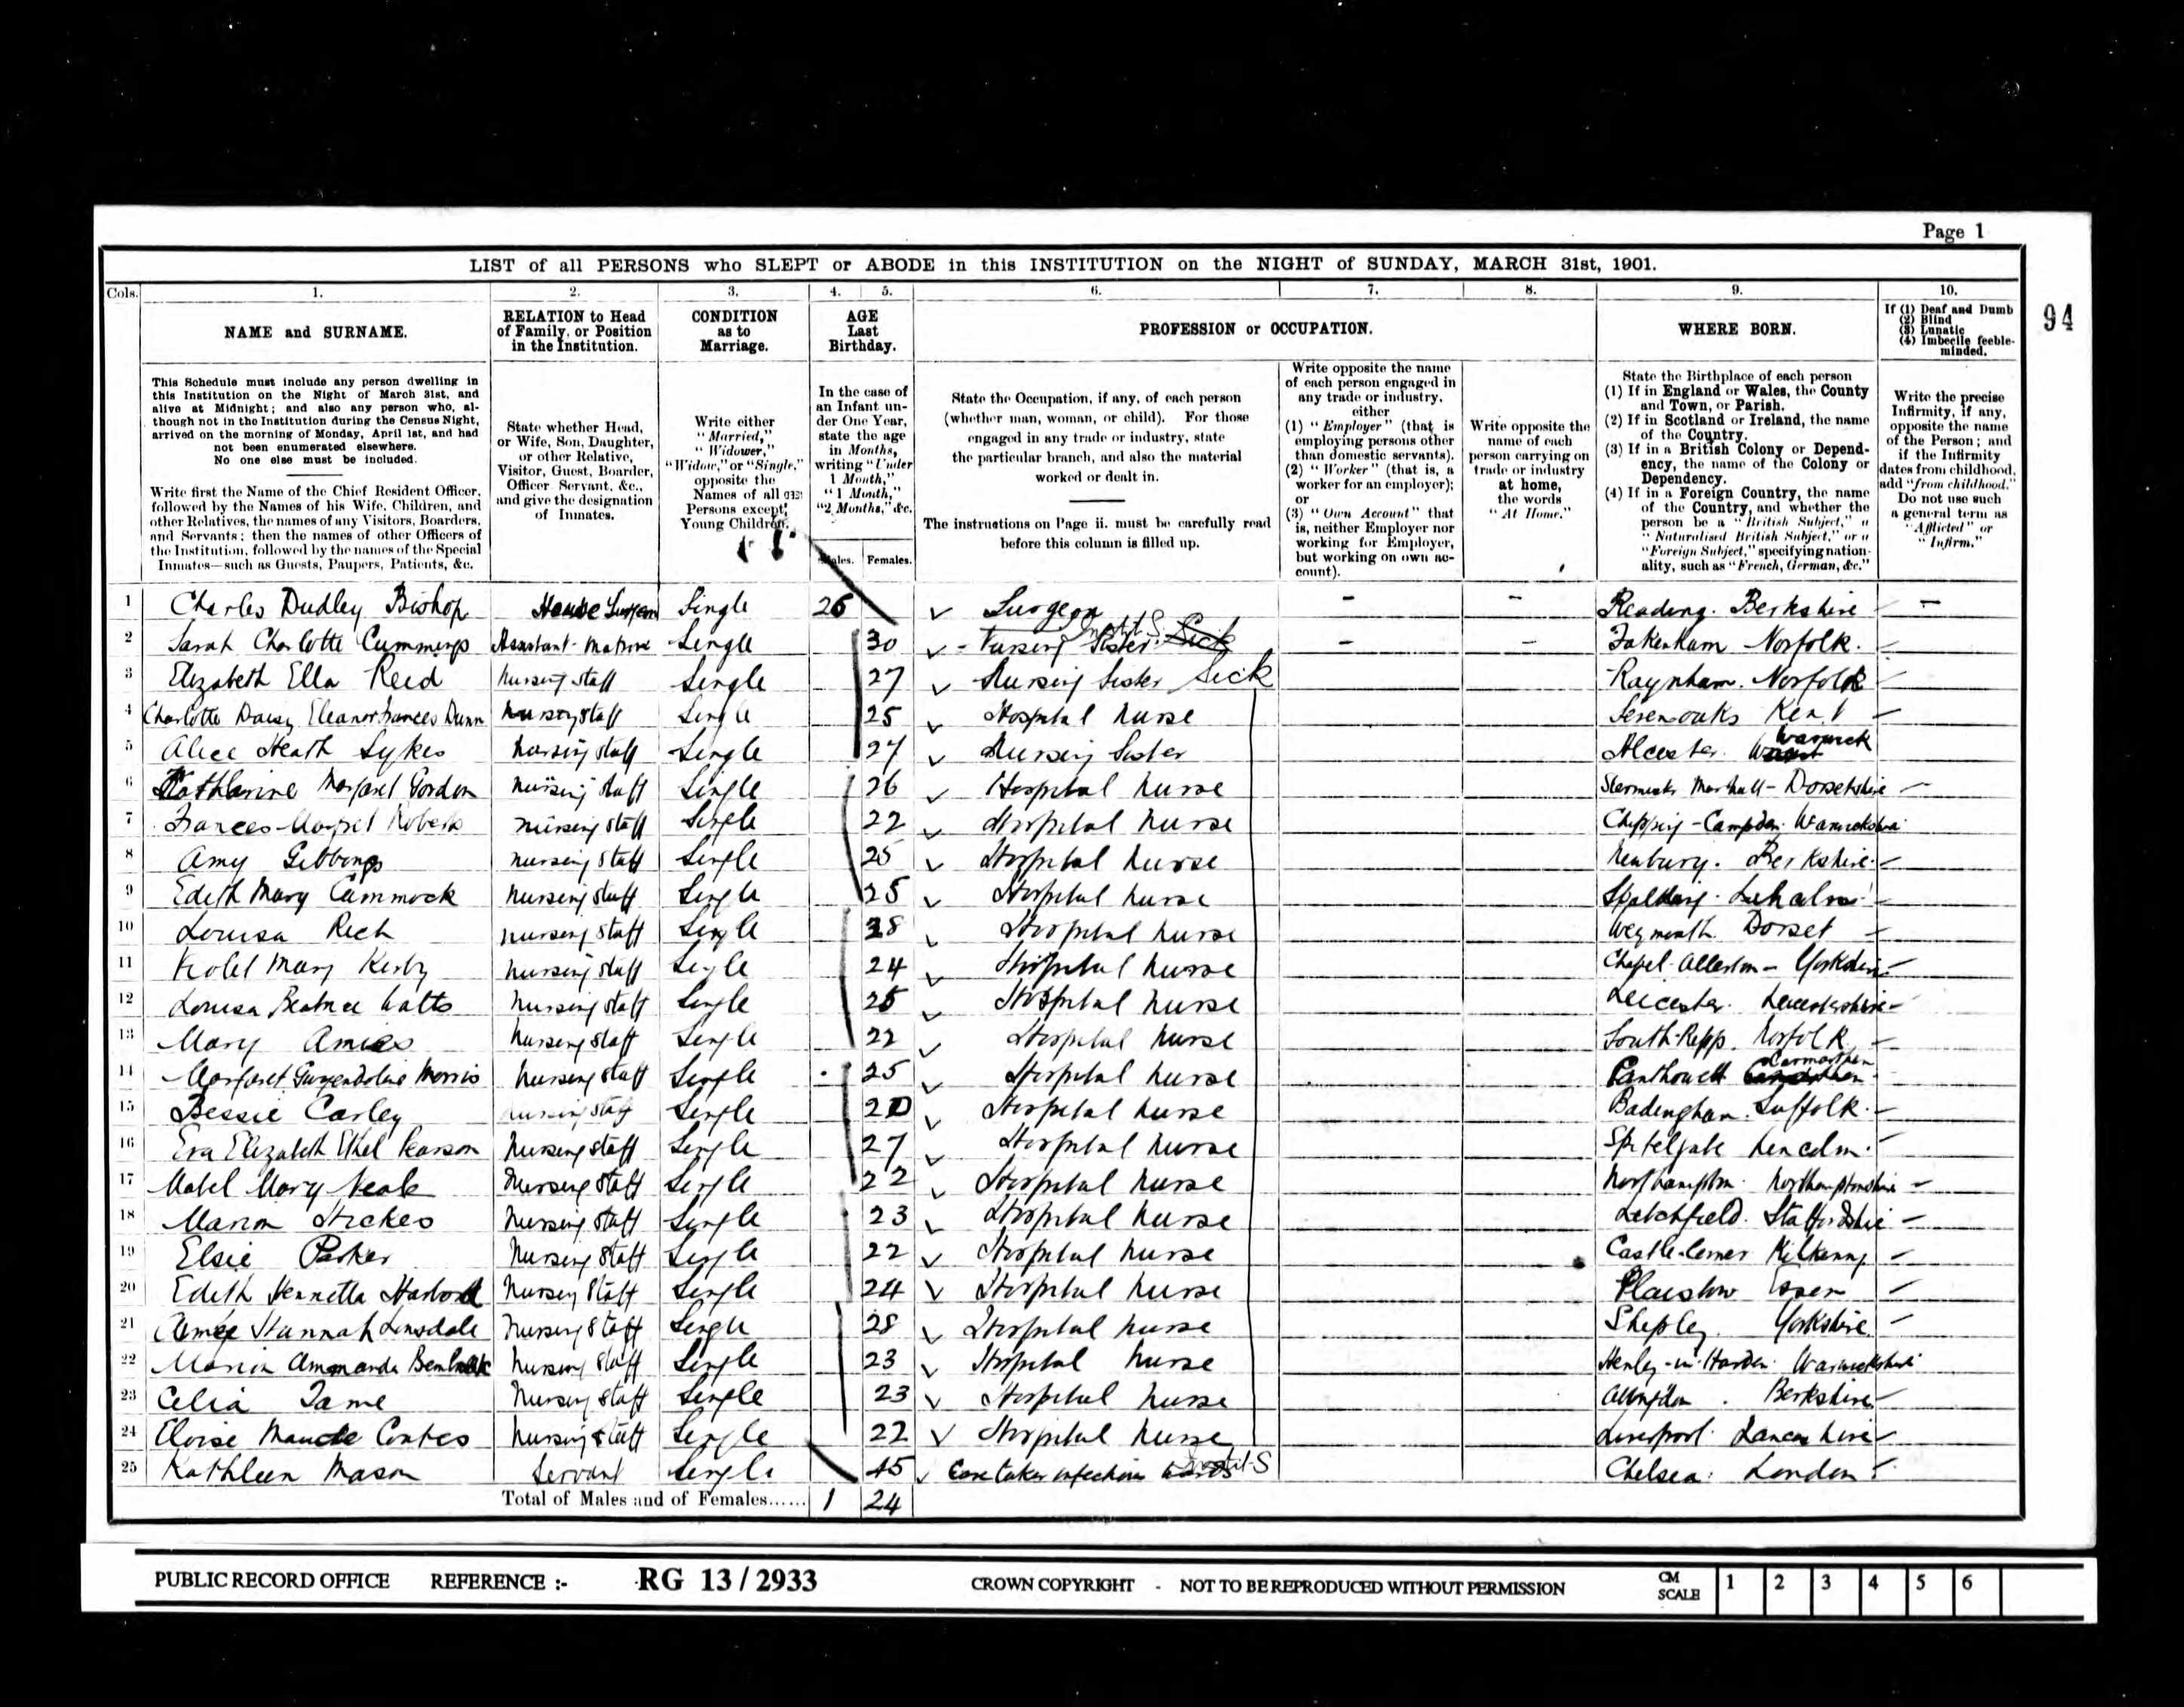 Page 1
LIST of all PERSONS who SLEPT or ABODE in this INSTITUTION on the NIGHT of SUNDAY, MARCH 31st, 1901.
Cols. 1. 2. 3. 4. 5. 6. 7. 8. 9. 10.
94
NAME and SURNAME.
This Schedule must include any person dwelling in
this Institution on the Night of March 31st, and
alive at Midnight; and also any person who, al-
though not in the Institution during the Census Night,
arrived on the morning of Monday, April 1st, and had
not been enumerated elsewhere.
No one else must be included.
Write first the Name of the Chief Resident Officer,
followed by the Names of his Wife, Children, and
other Relatives, the names of any Visitors, Boarders,
and Servants; then the names of other Officers of
the Institution, followed by the names of the Special
Inmates—such as Guests, Paupers, Patients, &c.
RELATION to Head
of Family, or Position
in the Institution.
State whether Head,
or Wife, Son, Daughter,
or other Relative,
Visitor, Guest, Boarder,
Officer, Servant, &c.,
and give the designation
of Inmates.
CONDITION
as to
Marriage.
Write either
"Married,"
"Widower,"
"Widow," or "Single,"
opposite the
Names of all
Persons except
Young Children.
AGE
Last
Birthday.
In the case of
an Infant un-
der One Year,
state the age
in Months,
writing "Under
1 Month,"
"1 Month,"
"2 Months," &c.
Males. Females.
PROFESSION or OCCUPATION.
State the Occupation, if any, of each person
(whether man, woman, or child). For those
engaged in any trade or industry, state
the particular branch, and also the material
worked or dealt in.
The instructions on Page ii. must be carefully read
before this column is filled up.
Write opposite the name
of each person engaged in
any trade or industry,
either
(1) "Employer" (that is
employing persons other
than domestic servants).
(2) "Worker" (that is, a
worker for an employer);
or
(3) "Own Account" that
is, neither Employer nor
working for Employer,
but working on own ac-
count).
Write opposite the
name of each
person carrying on
trade or industry
at home,
the words
"At Home."
WHERE BORN.
State the Birthplace of each person
(1) If in England or Wales, the County
and Town, or Parish.
(2) If in Scotland or Ireland, the name
of the Country.
(3) If in a British Colony or Depend-
ency, the name of the Colony or
Dependency.
(4) If in a Foreign Country, the name
of the Country, and whether the
person be a "British Subject," a
"Naturalised British Subject," or a
"Foreign Subject," specifying nation-
ality, such as "French, German, &c."
If (1) Deaf and Dumb
(2) Blind
(3) Lunatic
(4) Imbecile feeble-
minded.
Write the precise
Infirmity, if any,
opposite the name
of the Person; and
if the Infirmity
dates from childhood,
add "from childhood."
Do not use such
a general term as
"Afflicted" or
"Infirm."
1 Charles Dudley Bishop House Surgeon Single 26 Surgeon Reading. Berkshire
2 Sarah Charlotte Cummings Assistant-Matron Single 30 Nursing Sister Sick Fakenham Norfolk.
3 Elizabeth Ella Reed Nursing Staff Single 27 Nursing Sister Sick Raynham. Norfolk
4 Charlotte Daisy Eleanor Frances Dunn Nursing Staff Single 25 Hospital Nurse Sevenoaks Kent
5 Alice Heath Sykes Nursing Staff Single 27 Nursing Sister Alcester. Warwick
6 Katharine Margaret Gordon Nursing Staff Single 26 Hospital Nurse Marshall - Dorsetshire
7 Frances Margaret Roberts Nursing Staff Single 22 Hospital Nurse Chipping-Campden. Warwickshire
8 Amy Gibbings Nursing Staff Single 25 Hospital Nurse Newbury. Berkshire.
9 Edith Mary Cammock Nursing Staff Single 25 Hospital Nurse Spalding.
10 Louisa Rich Nursing Staff Single 28 Hospital Nurse Weymouth. Dorset
11 Violet Mary Kirby Nursing Staff Single 24 Hospital Nurse Chapel-Allerton - Yorkshire
12 Louisa Beatrice Watts Nursing Staff Single 25 Hospital Nurse Leicester. Leicestershire
13 Mary Amies Nursing Staff Single 22 Hospital Nurse South-Repp. Norfolk
14 Margaret Gwyendoline Morris Nursing Staff Single 25 Hospital Nurse Carmarthen
15 Bessie Carley Nursing Staff Single 20 Hospital Nurse Badingham. Suffolk.
16 Eva Elizabeth Ethel Pearson Nursing Staff Single 27 Hospital Nurse Spitelgate Lincoln.
17 Mabel Mary Neale Nursing Staff Single 22 Hospital Nurse Northampton. Northamptonshire
18 Marion Stickes Nursing Staff Single 23 Hospital Nurse Letchfield. Staffordshire
19 Elsie Parker Nursing Staff Single 22 Hospital Nurse Castle-Comer Kilkenny
20 Edith Henrietta Harbord Nursing Staff Single 24 Hospital Nurse Plaistow Essex
21 Aimée Hannah Linsdale Nursing Staff Single 28 Hospital Nurse Shepley. Yorkshire.
22 Marian Ammanda Nursing Staff Single 23 Hospital Nurse Henley-in-Harden. Warwickshire
23 Celia Tame Nursing Staff Single 23 Hospital Nurse Abingdon. Berkshire
24 Eloise Maude Coates Nursing Staff Single 22 Hospital Nurse Liverpool. Lancashire
25 Kathleen Mason Servant Single 45 Caretaker infectious wards Chelsea: London
Total of Males and of Females...... 1 24
PUBLIC RECORD OFFICE REFERENCE :- RG 13/2933 CROWN COPYRIGHT - NOT TO BE REPRODUCED WITHOUT PERMISSION CM SCALE 1 2 3 4 5 6